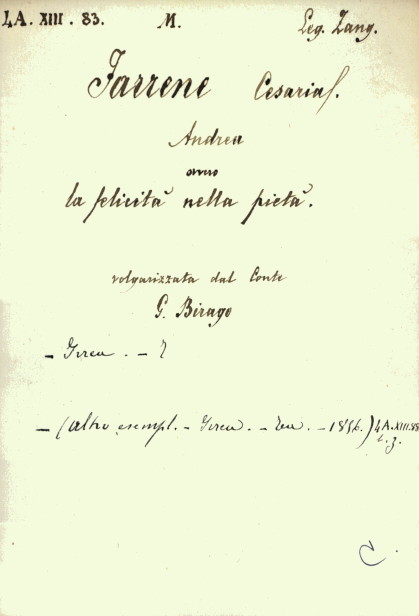 LA. XIII. 83. M. Leg. Zang.
Farrene Cesaria f.
Andrea
ovvero
la felicità nella pietà.
volgarizzata dal Conte
G. Birago
–
– (altro esempl. – – – 1856.) LA. XIII. 88
C